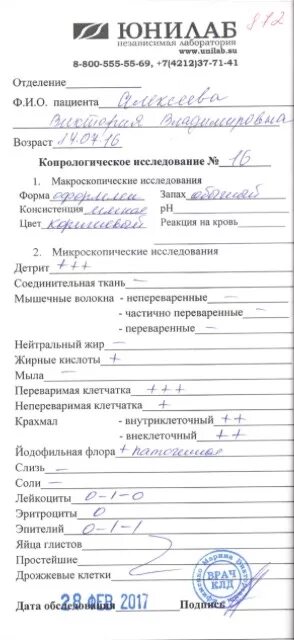 872
ЮНИЛАБ
независимая лаборатория
www.unilab.su
8-800-555-55-69, +7(4212)37-71-41
Отделение
Ф.И.О. пациента Алексеева
Виктория Владимировна
Возраст 14.07.16
Копрологическое исследование № 16
1. Макроскопические исследования
Форма оформлен Запах обычный
Консистенция мягкая pH
Цвет коричневый Реакция на кровь
2. Микроскопические исследования
Детрит +++
Соединительная ткань —
Мышечные волокна - непереваренные —
- частично переваренные —
- переваренные —
Нейтральный жир —
Жирные кислоты +
Мыла —
Переваримая клетчатка +++
Непереваримая клетчатка +
Крахмал - внутриклеточный ++
- внеклеточный ++
Йодофильная флора + патогенная
Слизь —
Соли —
Лейкоциты 0-1-0
Эритроциты 0
Эпителий 0-1-1
Яйца глистов
Простейшие
Дрожжевые клетки
Дата обследования 28 ФЕВ 2017 Подпись
ВРАЧ
КЛД
Марина